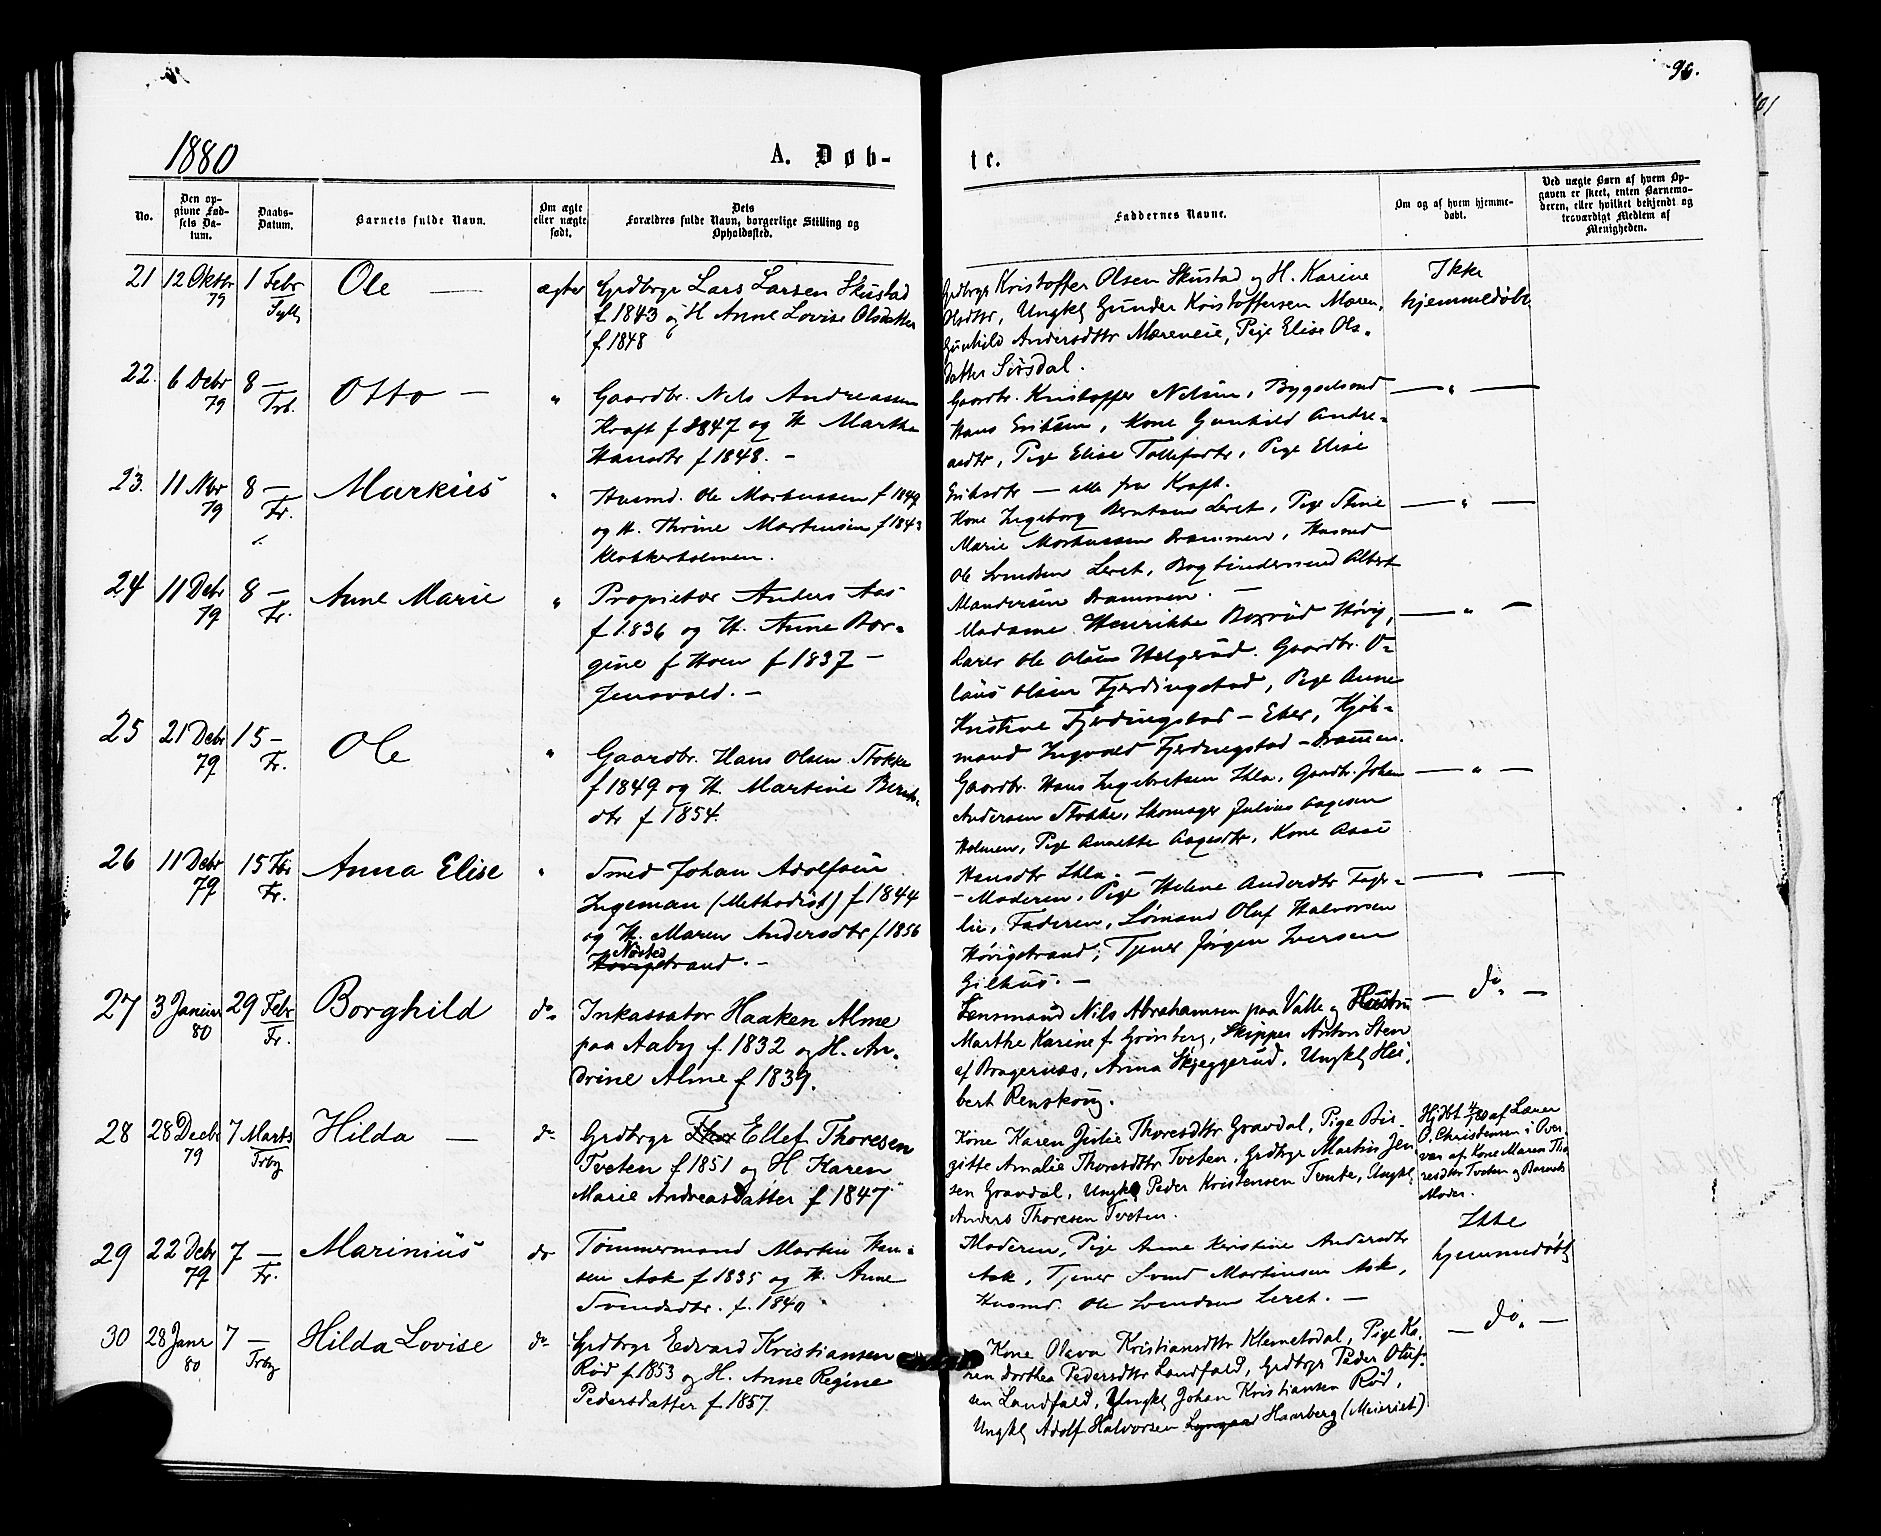 96.
101
1880
A. Døb-
te.
No.
Den op-
givne Fød-
sels Da-
tum.
Daabs-
Datum.
Barnets fulde Navn.
Om ægte
eller uægte
født.
Dets
Forældres fulde Navn, borgerlige Stilling og
Opholdssted.
Faddernes Navne.
Om og af hvem hjemme-
døbt.
Ved uægte Børn af hvem Op-
gaven er skeet, enten Barnemo-
deren, eller hvilket bekjendt og
troværdigt Medlem af
Menigheden.
21 12 Oktbr 79 1 Febr Ole — ægter
Grdbrgr Lars Larsen Skustad
f 1843 og H Anne Lovise Olsdatter
f. 1848
Grdbrgr Kristoffer Olsen Skustad og H. Karine
Olsdttr, Ungkl Gunder Kristoffersen Maren,
Gunhild Andersdttr Mæreneie, Pige Elise Ols-
datter Sørsdal.
Ikke
hjemmedøbt
22. 6 Debr 79 8 — Otto — "
Gaardbr. Nels Andreassen
Kraft f 1847 og H Marthe
Hansdtr f 1848. -
Gaardbr. Kristoffer Nelsen, Bygselmd
Hans Eriksen, Kone Gunhild Andre-
asdtr, Pige Elise Tollefsdtr, Pige Elise
Eriksdtr — alle fra Kraft.
— " —
23. 11 Nbr 79 8 — Fr. Markus "
Husmd. Ole Markussen f 1849
og H. Thrine Martinsen f 1843
Klokkerholmen.
Kone Ingeborg Berntsen Leret, Pige Stine
Marie Markussen Drammen, Husmd
Ole Svendsen Leret, Bogbindersvend Albert
Mandersen Drammen. —
— " —
24 11 Debr 79 8 — Fr. Anne Marie "
Propietær Anders Aas
f 1836 og H. Anne Bor-
gine f Hoen f 1837 —
Jensvold. —
Madame Henrikke Boxrud Høvig,
Lærer Ole Olsen Helgerud. Gaardbr. O-
laus Olsen Fjerdingstad, Pige Anne
Kristine Fjerdingstad - Eker, Kjøb-
mand Ingvald Fjerdingstad - Drammen.
— " —
25 21 Debr 79 15 — Fr. Ole "
Gaardbr. Hans Olsen Stokke
f 1849 og H. Martine Bernts-
dtr f 1854.
Gaardbr. Hans Ingebretsen Ihla, Gaardbr. Johan
Andersen Stokke, Skomager Julius Aagesen
Holmen, Pige Annette Aagesdtr, Kone Aase
Hansdtr Ihla. —
— " —
26 11 Debr 79 15 Fbr Fr. Anna Elise "
Smed Johan Adolfsen
Ingeman (Methodist) f 1844
og H. Maren Andersdtr f 1856
Nøsted
Høvigstrand. —
- Moderen, Pige Helene Andersdtr Fager-
lie, Faderen, Sømand Oluf Halvorsen
Høvigstrand; Tjener Jørgen Iversen
Gilhus. —
— " —
27 3 Januar 80 29 Febr Fr. Borghild do
Inkassator Haaken Alme
paa Aaby f. 1832 og H. An-
drine Alme f 1839.
Lensmand Nils Abrahamsen paa Valle og Hustru
Marthe Karine f. Grønberg, Skipper Anton Sten
af Bragernæs, Anna Skjeggerud. Ungkl Hei-
bert Renskoug.
— do —
28 28 Decbr 79 7 Marts Hilda — do
Grdbrgr Thor Ellef Thoresen
Tveten f 1851 og H Karen
Marie Andreasdatter f 1847
Kone Karen Julie Thoresdttr Gravdal, Pige Bir-
gitte Amalie Thoresdttr Tveten, Grdbrgr Martin Jen-
sen Gravdal, Ungkl Peder Kristensen Tronke, Ungkl
Anders Thoresen Tveten.
Hjdbt 4/80 af Lærer
O. Christensen i Over-
vær af Kone Maren Tho-
resdttr Tveten og Barnets
Moder.
29 22 Debr 79 7 — Fr. Marinius do
Tømmermand Martin Han-
sen Ask f 1835 og H. Anne
Svendsdtr. f. 1840
Moderen, Pige Anne Kristine Andersdtr
Ask, Tjener Svend Martinsen Ask,
Husmd. Ole Svendsen Leret. —
Ikke
hjemmedøbt
30 28 Janr 80 7 — Hilda Lovise do
Grdbrgr Edvard Kristiansen
Rød f. 1853 og H. Anne Regine
Pedersdatter f 1857.
Kone Olava Kristiansdttr Klemetsdal, Pige Ka-
ren Dorthea Pedersdttr Landfald, Grdbrgr Peder Oluf-
sen Landfald, Ungkl Johan Kristiansen Rød,
Ungkl Adolf Halvorsen Lyngaas Haarberg (Meieriet)
— do —